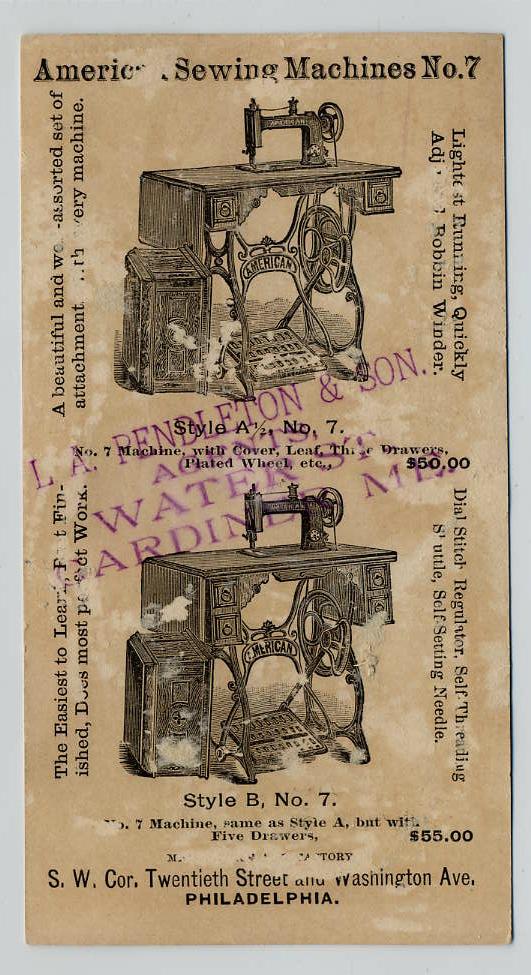 American Sewing Machines No.7
A beautiful and well-assorted set of
attachments with every machine.
Lightest Running, Quickly
Adj Bobbin Winder.
AMERICAN
AMERICAN
Style A½, No, 7.
No. 7 Machine, with Cover, Leaf, Three Drawers,
Plated Wheel, etc., $50.00
L. A. PENDLETON & SON.
AGENTS,
WATER ST
GARDINER ME.
The Easiest to Learn, Best Fin-
ished, Does most perfect Work.
Dial Stitch Regulator, Self Threading
Shuttle, Self Setting Needle.
AMERICAN
Style B, No. 7.
No. 7 Machine, same as Style A, but with
Five Drawers, $55.00
FACTORY
S. W. Cor. Twentieth Street and Washington Ave,
PHILADELPHIA.